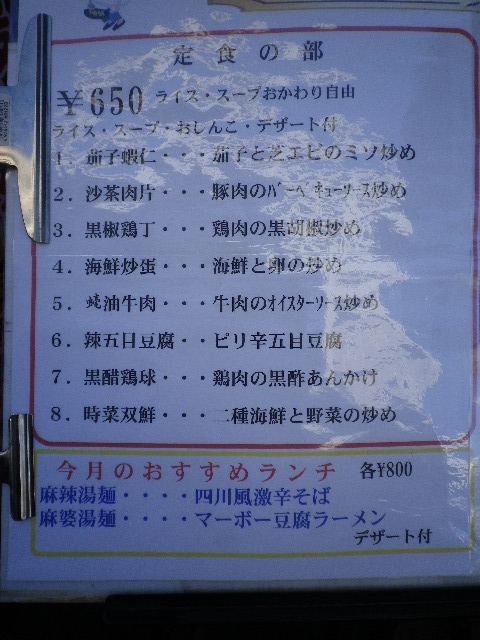 定食の部
¥650 ライス・スープおかわり自由
ライス・スープ・おしんこ・デザート付
1．茄子蝦仁・・・茄子と芝エビのミソ炒め
2．沙茶肉片・・・豚肉のﾊﾞｰﾍﾞｷｭｰｿｰｽ炒め
3．黒椒鶏丁・・・鶏肉の黒胡椒炒め
4．海鮮炒蛋・・・海鮮と卵の炒め
5．蚝油牛肉・・・牛肉のｵｲｽﾀｰｿｰｽ炒め
6．辣五目豆腐・・ピリ辛五目豆腐
7．黒醋鶏球・・・鶏肉の黒酢あんかけ
8．時菜双鮮・・・二種海鮮と野菜の炒め
今月のおすすめランチ 各¥800
麻辣湯麺・・・・四川風激辛そば
麻婆湯麺・・・・マーボー豆腐ラーメン
デザート付